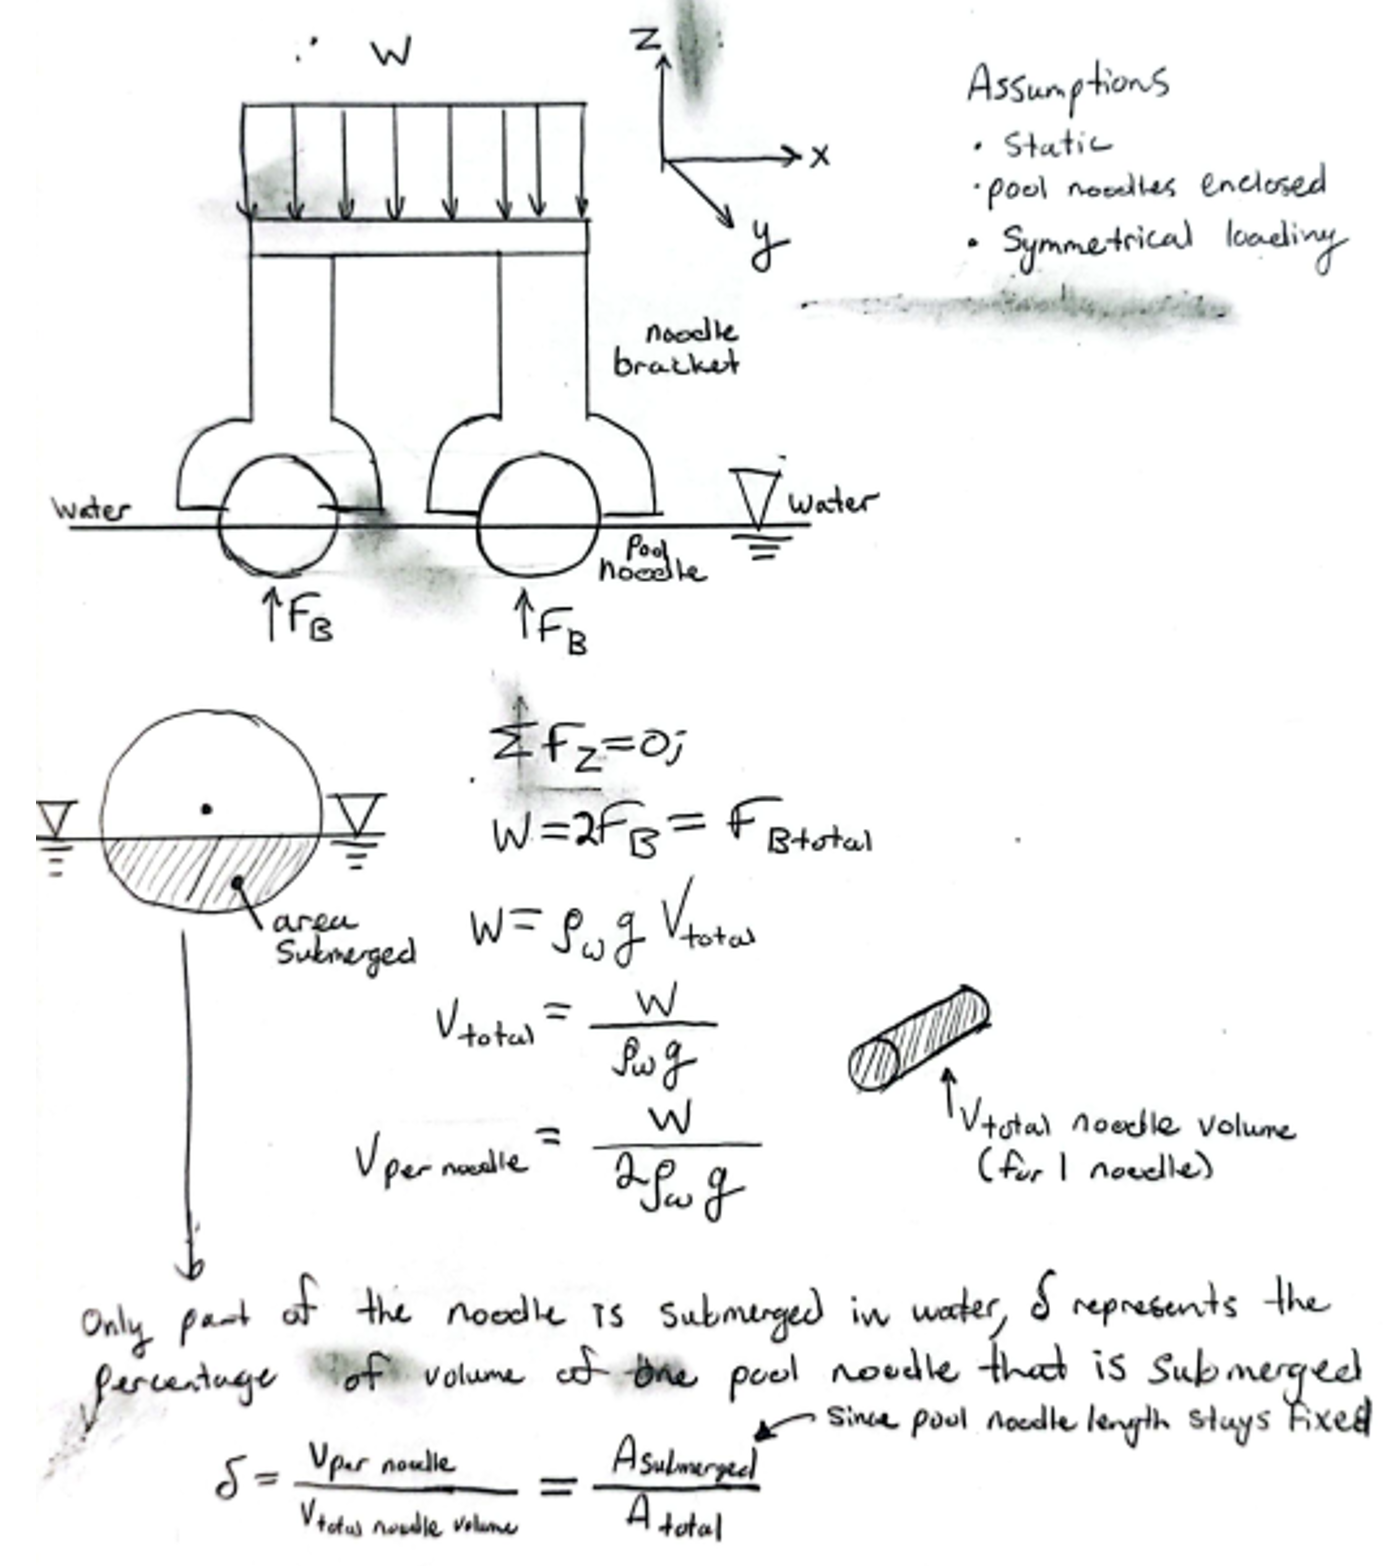 W
Z
x
y
Assumptions
• Static
• pool noodles enclosed
• Symmetrical loading
noodle
bracket
water
water
pool
noodle
↑F_B
↑F_B
ΣF_Z=0;
W=2F_B=F_Btotal
area
Submerged
W=ρ_w g V_total
V_total = W / ρ_w g
V_per noodle = W / 2ρ_w g
V_total noodle volume
(for 1 noodle)
Only part of the noodle is submerged in water, δ represents the
percentage of volume of one pool noodle that is submerged
since pool noodle length stays fixed
δ = V_per noodle / V_total noodle volume = A_submerged / A_total